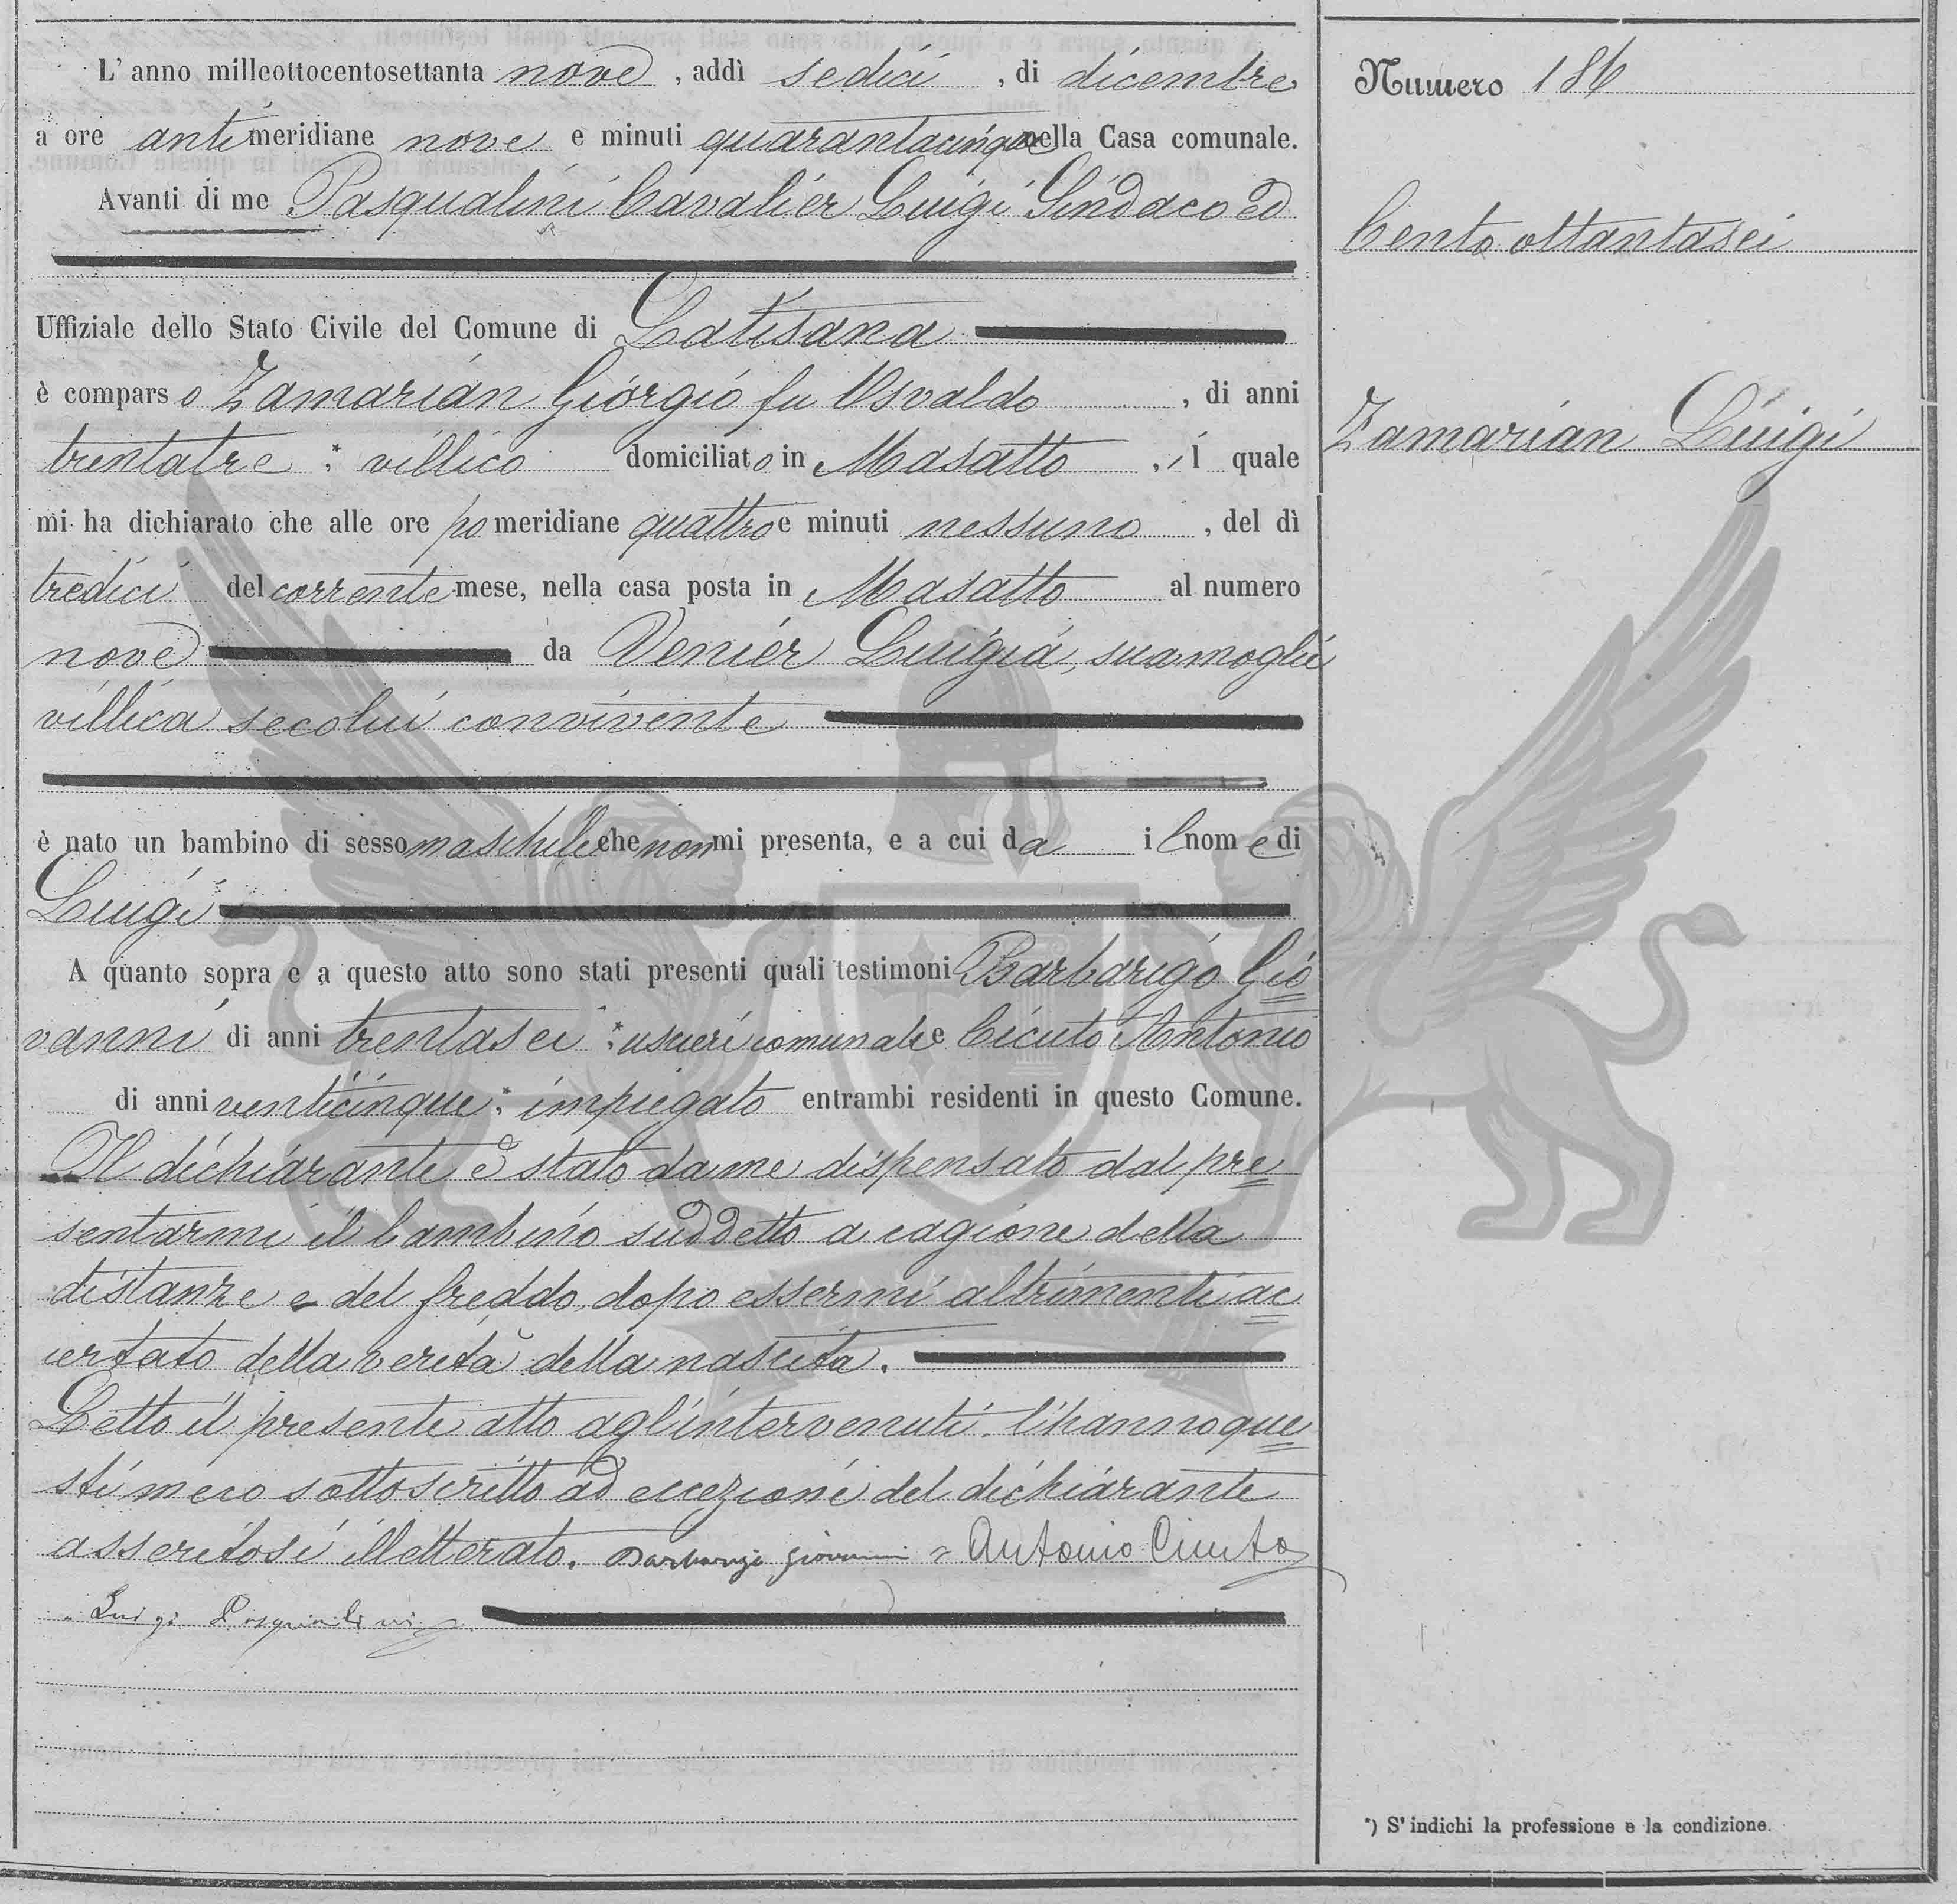 L'anno milleottocentosettanta nove, addì sedici, di dicembre
a ore antimeridiane nove e minuti quarantacinque nella Casa comunale.
Avanti di me Pasqualini Cavalier Luigi Sindaco ed
Uffiziale dello Stato Civile del Comune di Latisana
è comparso Zamarian Giorgio fu Osvaldo, di anni
trentatre *: villico domiciliato in Masatto, il quale
mi ha dichiarato che alle ore pomeridiane quattro e minuti nessuno, del dì
tredici del corrente mese, nella casa posta in Masatto al numero
nove da Venier Luigia, sua moglie
villica secolui convivente
è nato un bambino di sesso maschile che non mi presenta, e a cui da il nome di
Luigi
A quanto sopra e a questo atto sono stati presenti quali testimoni Barbarigo Gio=
vanni di anni trentasei *: usciere comunale e Cicuto Antonio
di anni venticinque *: impiegato entrambi residenti in questo Comune.
Il dichiarante è stato da me dispensato dal pre=
sentarmi il bambino suddetto a cagione della
distanze e del freddo, dopo essermi altrimenti ac=
certato della verità della nascita.
Letto il presente atto agl'intervenuti l'hanno que=
sti meco sottoscritto ad eccezione del dichiarante
asseritosi illetterato. Barbarigo Giovanni = Antonio Cicuto
" Luigi Pasqualini
Numero 186
Cento ottantasei
Zamarian Luigi
*) S'indichi la professione e la condizione.